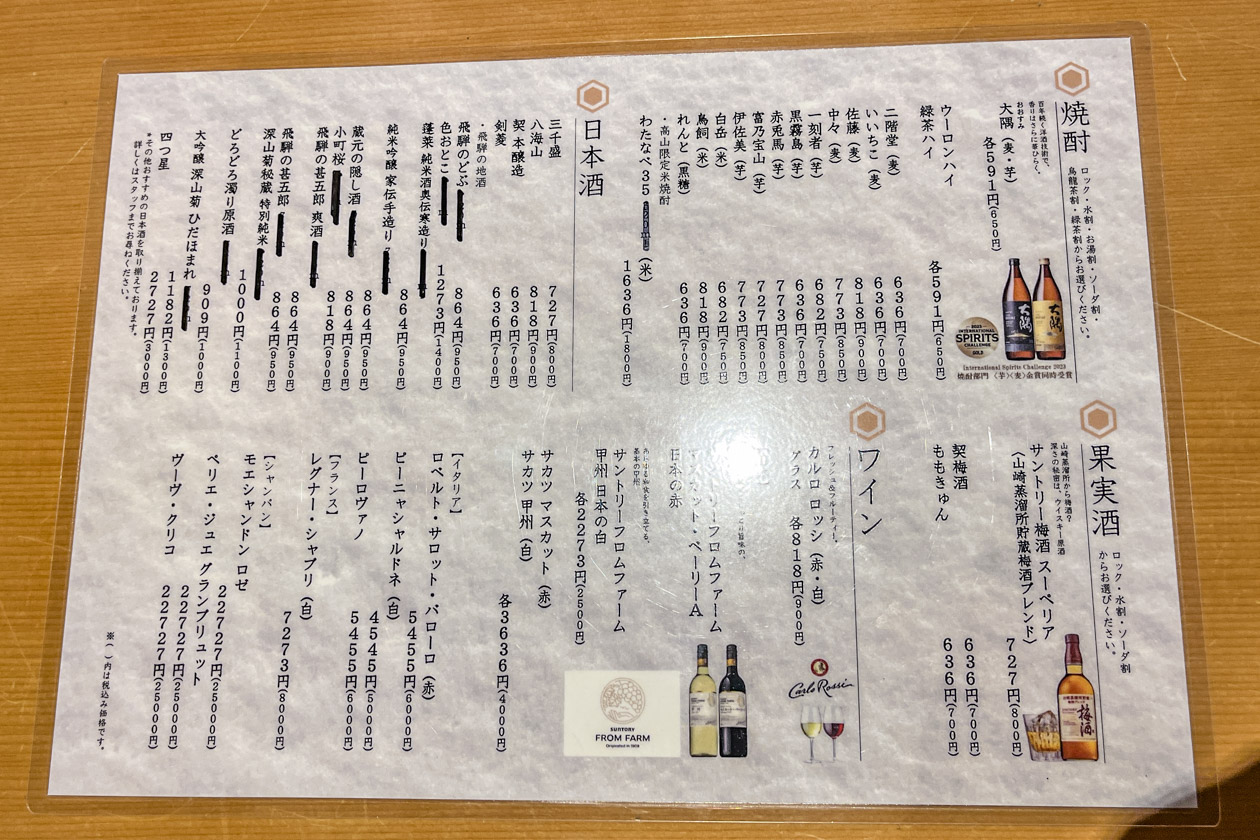 焼酎
ロック・水割・お湯割・ソーダ割・
烏龍茶割・緑茶割からお選びください。
百年続く洋酒技術で、
香りはさらに華ひらく。
おおすみ
大隅（麦・芋）
各591円(650円)
INTERNATIONAL
SPIRITS
CHALLENGE
GOLD
International Spirits Challenge 2023
焼酎部門 〈芋〉〈麦〉金賞同時受賞
ウーロンハイ
緑茶ハイ
各591円(650円)
二階堂（麦） 636円(700円)
いいちこ（麦） 636円(700円)
佐藤（麦） 818円(900円)
中々（麦） 773円(850円)
一刻者（芋） 682円(750円)
黒霧島（芋） 636円(700円)
赤兎馬（芋） 773円(850円)
富乃宝山（芋） 727円(800円)
伊佐美（芋） 773円(850円)
白岳（米） 682円(750円)
鳥飼（米） 818円(900円)
れんと（黒糖） 636円(700円)
・高山限定米焼酎
わたなべ35（米） 1636円(1800円)
日本酒
三千盛 727円(800円)
八海山 818円(900円)
契 本醸造 636円(700円)
剣菱 636円(700円)
・飛騨の地酒
飛騨のどぶ 864円(950円)
色おとこ 1273円(1400円)
蓬莱 純米酒奥伝寒造り
純米吟醸 家伝手造り 864円(950円)
蔵元の隠し酒 864円(950円)
小町桜 864円(950円)
飛騨の甚五郎 爽酒 818円(900円)
飛騨の甚五郎 864円(950円)
深山菊秘蔵 特別純米 864円(950円)
どろどろ濁り原酒 1000円(1100円)
大吟醸 深山菊 ひだほまれ 909円(1000円)
1182円(1300円)
四つ星 2727円(3000円)
*その他おすすめの日本酒を取り揃えております。
詳しくはスタッフまでお尋ねください。
果実酒
ロック・水割・ソーダ割
からお選びください。
山崎蒸溜所から梅酒？
深さの秘密は、ウイスキー原酒
サントリー梅酒 スーペリア
（山崎蒸溜所貯蔵梅酒ブレンド）
727円(800円)
梅酒
契梅酒 636円(700円)
ももきゅん 636円(700円)
ワイン
フレッシュ&フルーティー。
カルロ ロッシ（赤・白）
グラス 各818円(900円)
Carlo Rossi
フロムファーム
ベーリーA
日本の赤
サントリーフロムファーム
甲州 日本の白
各2273円(2500円)
SUNTORY
FROM FARM
Originated in 1909
サカツ マスカット（赤）
サカツ 甲州（白）
各3636円(4000円)
【イタリア】
ロベルト・サロット・バローロ（赤） 5455円(6000円)
ビーニャシャルドネ（白） 4545円(5000円)
ピーロヴァノ 5455円(6000円)
【フランス】
レグナー・シャブリ（白） 7273円(8000円)
【シャンパン】
モエシャンドン ロゼ 22727円(25000円)
ペリエ・ジュエ グランブリュット 22727円(25000円)
ヴーヴ・クリコ 22727円(25000円)
※（ ）内は税込み価格です。